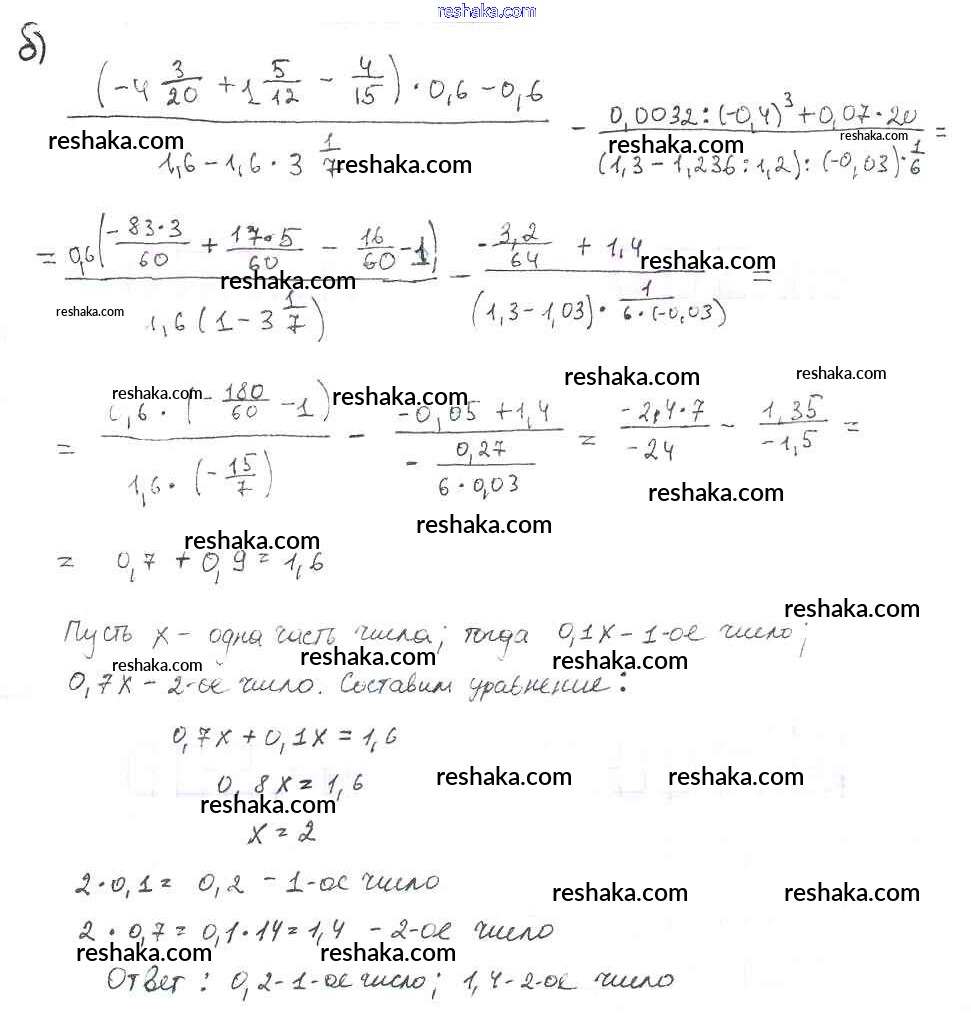 reshaka.com
б)
(-4 3/20 + 1 5/12 - 4/15) · 0,6 - 0,6 / 1,6 - 1,6 · 3 1/7 - 0,0032 : (-0,4)³ + 0,07 · 20 / (1,3 - 1,236 : 1,2) : (-0,03) · 1/6 =
reshaka.com reshaka.com reshaka.com reshaka.com
= 0,6(-83·3/60 + 17·5/60 - 16/60 - 1) / 1,6(1 - 3 1/7) - -3,2/64 + 1,4 / (1,3 - 1,03) · 1/6·(-0,03) =
reshaka.com reshaka.com reshaka.com
reshaka.com reshaka.com
= 0,6 · (-180/60 - 1) / 1,6 · (-15/7) - -0,05 + 1,4 / - 0,27/6·0,03 = -2,4·7/-24 - 1,35/-1,5 =
reshaka.com reshaka.com
reshaka.com
reshaka.com
reshaka.com
= 0,7 + 0,9 = 1,6
reshaka.com
Пусть x - одна часть числа; тогда 0,1x - 1-ое число;
reshaka.com reshaka.com reshaka.com
0,7x - 2-ое число. Составим уравнение:
0,7x + 0,1x = 1,6
0,8x = 1,6
reshaka.com reshaka.com
reshaka.com
x = 2
2·0,1 = 0,2 - 1-ое число
reshaka.com reshaka.com
2 · 0,7 = 0,1·14 = 1,4 - 2-ое число
reshaka.com reshaka.com
Ответ: 0,2 - 1-ое число; 1,4 - 2-ое число